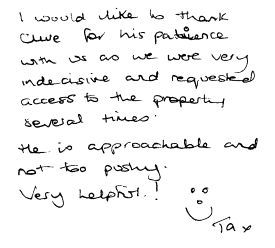 I would like to thank
Clive for his patience
with us as we were very
indecisive and requested
access to the property
several times.
He is approachable and
not too pushy.
Very helpful!
Tax